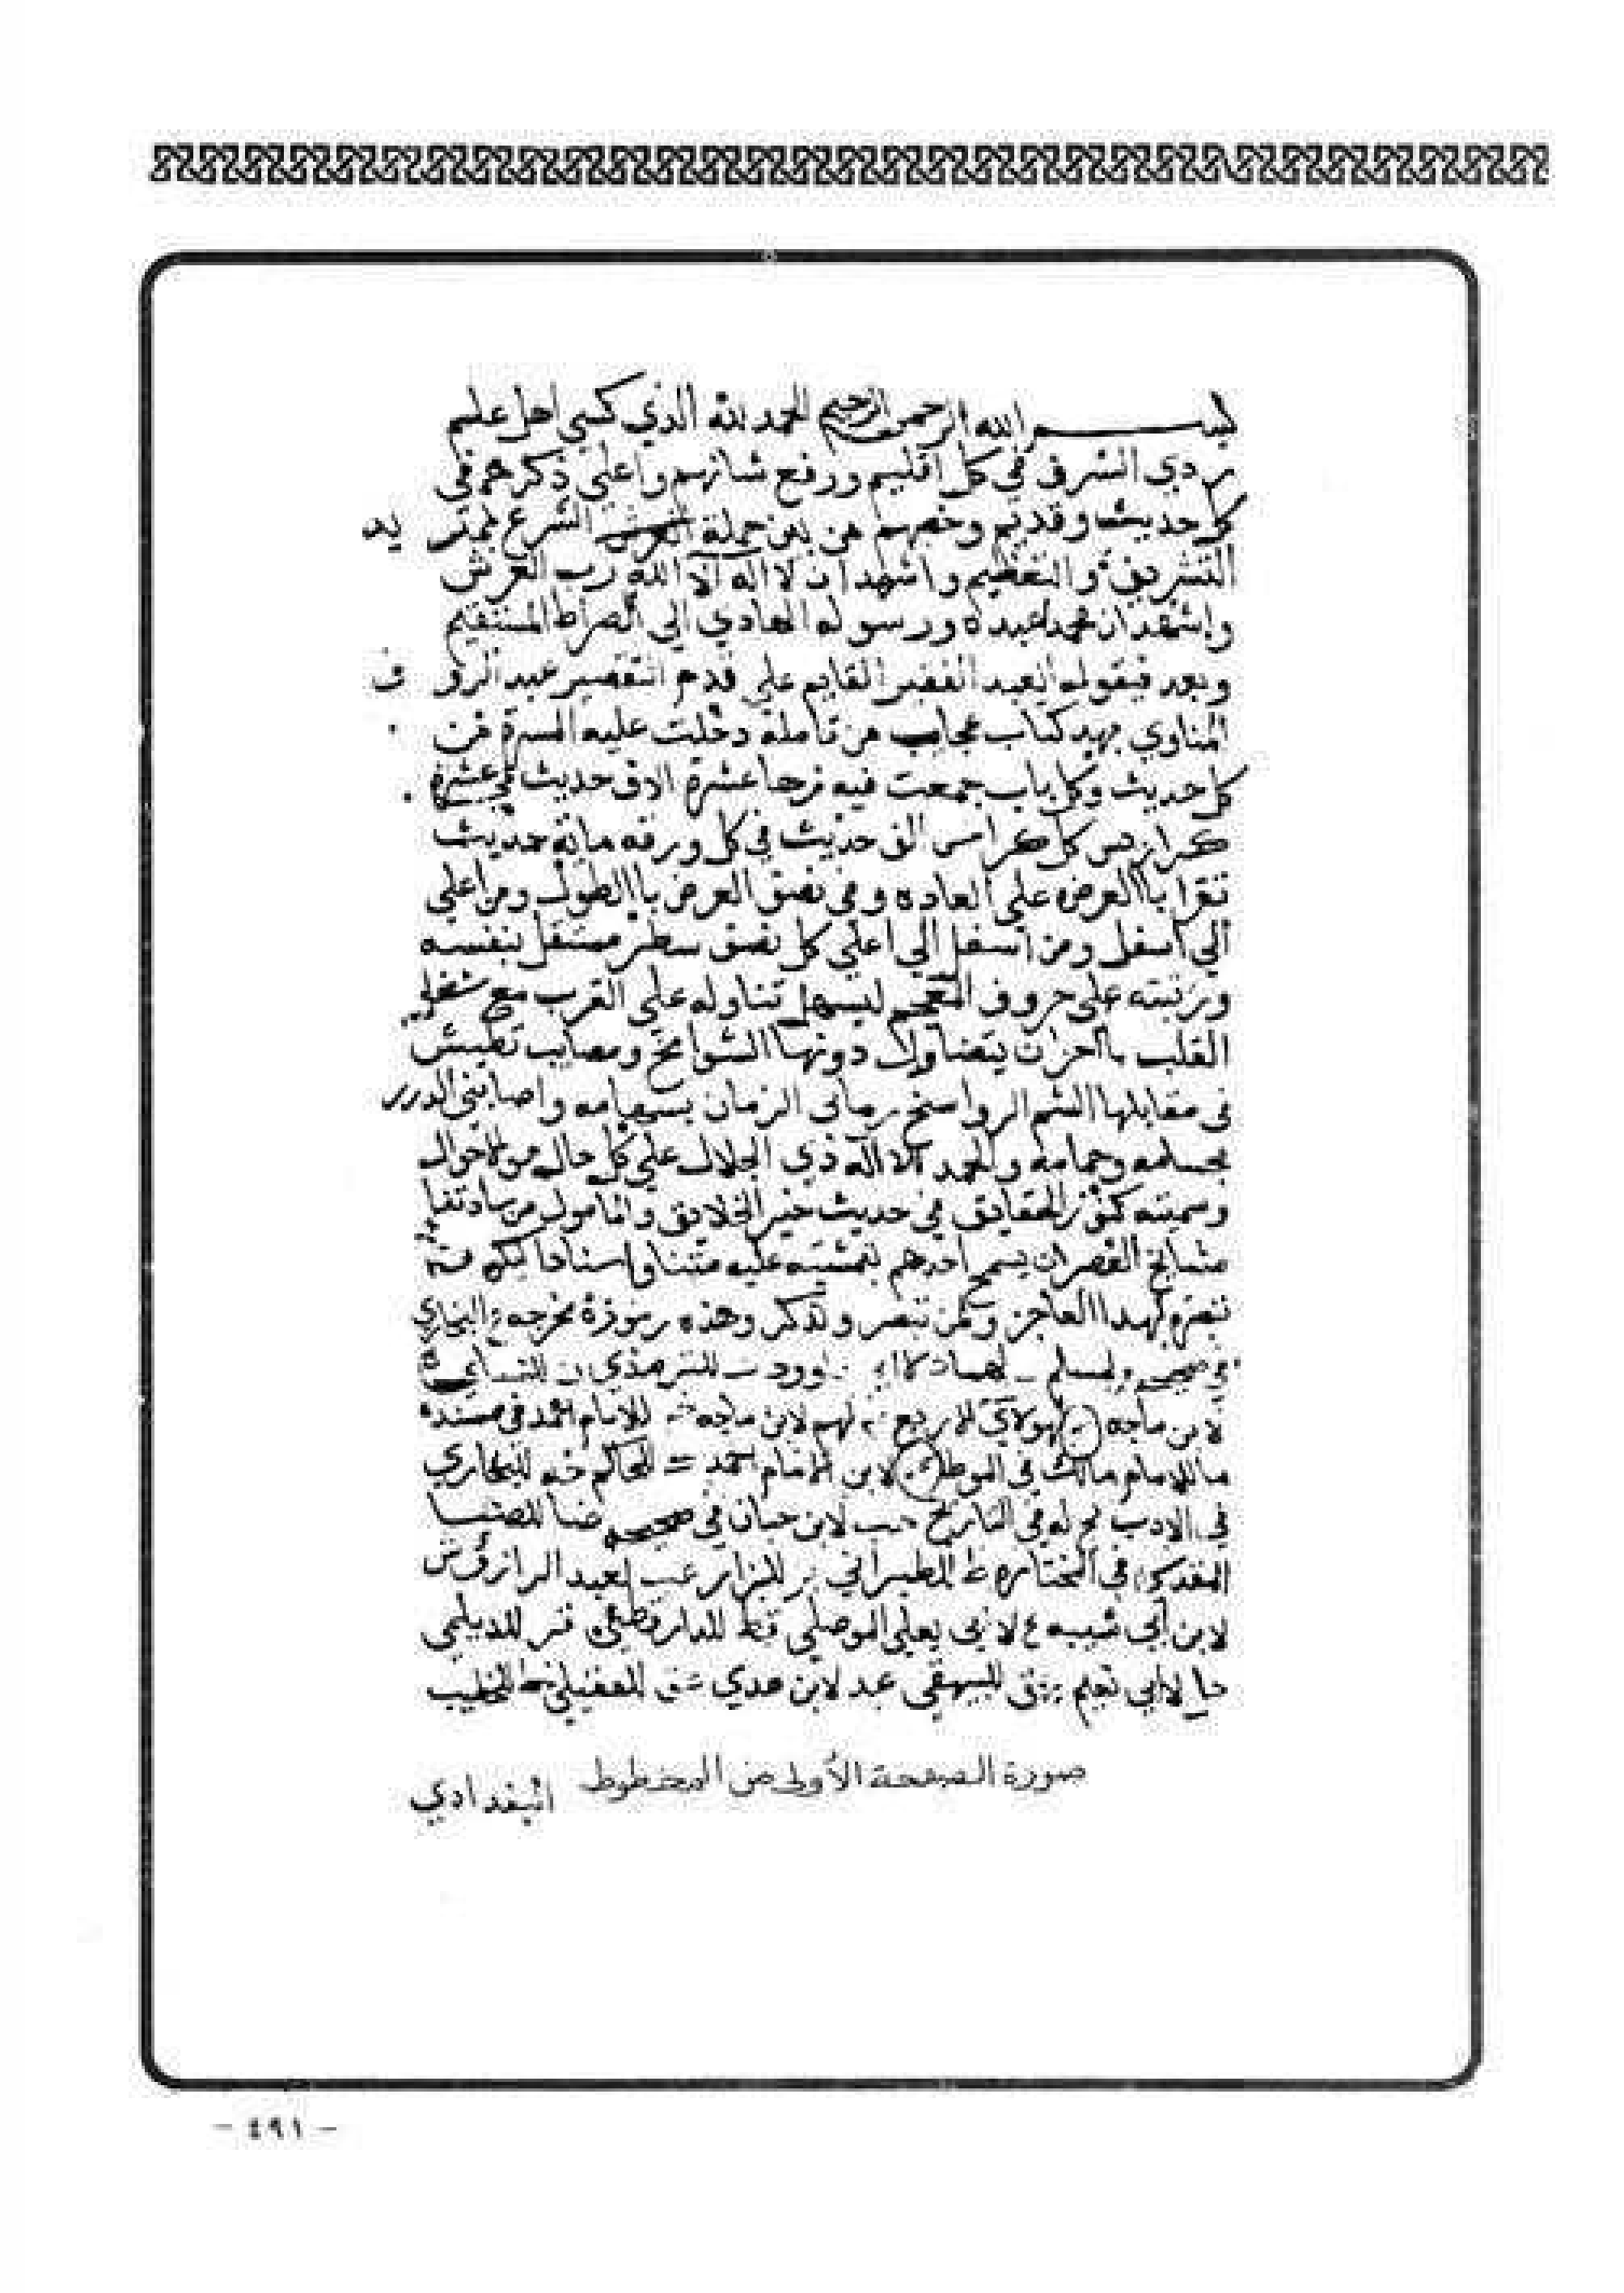 بسم الله الرحمن الرحيم الحمد لله الذي كسي اهل علم
دي الشرف في كل اقليم ورفع شانهم واعلى ذكرهم في
كل حديث وقديم وخصهم من بين حملة الشرع بمز يد
التشريف والتعظيم واشهد ان لا اله الا الله رب العرش
واشهد ان محمدا عبده ورسوله الهادي الي الصراط المستقيم
وبعد فيقول العبد الفقير القايم على قدم التقصير عبد الرو ف
المناوي كتاب عجاب من تامله دخلت عليه المسرة من
كل حديث وكل باب جمعت فيه عشرة الاف حديث في عشرة
كراريس كل كراس الف حديث في كل ورقه ماية حديث
تقرا باالعرض على العاده وفي نصف العرض باالطول ومن اعلي
الي اسفل ومن اسفل الي اعلي كل نصف سطر مستقل بنفسه
ورتبته على حروف المعجم ليسهل تناوله على القرب مع شغل
القلب باحزان يتضاول دونها الشوامخ ومصايب تطيش
في مقابلها الشم الرواسخ رماني الزمان بسهامه واصابني الدرر
بحسامه وحمامه والحمد لله ذي الجلال على كل حال من الاحوال
وسميته كنوز الحقايق في حديث خير الخلايق والمامول من سادتنا
مشايخ العصر ان يسمح احدهم بتمشيته عليه متنا واسنادا
تبصرة لهذا العاجز ولمن تبصر وتذكر وهذه رموزه مخرجه خ البخاري
في صحيحه ولمسلم داوود ت للترمذي ن للنساي ه
لابن ماجه لهولاي الاربع لهم لابن ماجه للامام احمد في مسنده
ما للامام مالك في الموطا لابن الامام احمد للحاكم خد للبخاري
في الادب تخ له في التاريخ حب لابن حبان في صحيحه ضيا للضيا
المقدسي في المختاره ط للطبراني بز للبزار عب لعبد الرازق ش
لابن ابي شيبه ع لابي يعلي الموصلي قط للدارقطني فر للديلمي
حل لابي نعيم هق للبيهقي عد لابن عدي عق للعقيلي خط للخطيب
صورة الصفحة الأولى من المخطوط البغدادي
- ٤٩١ -